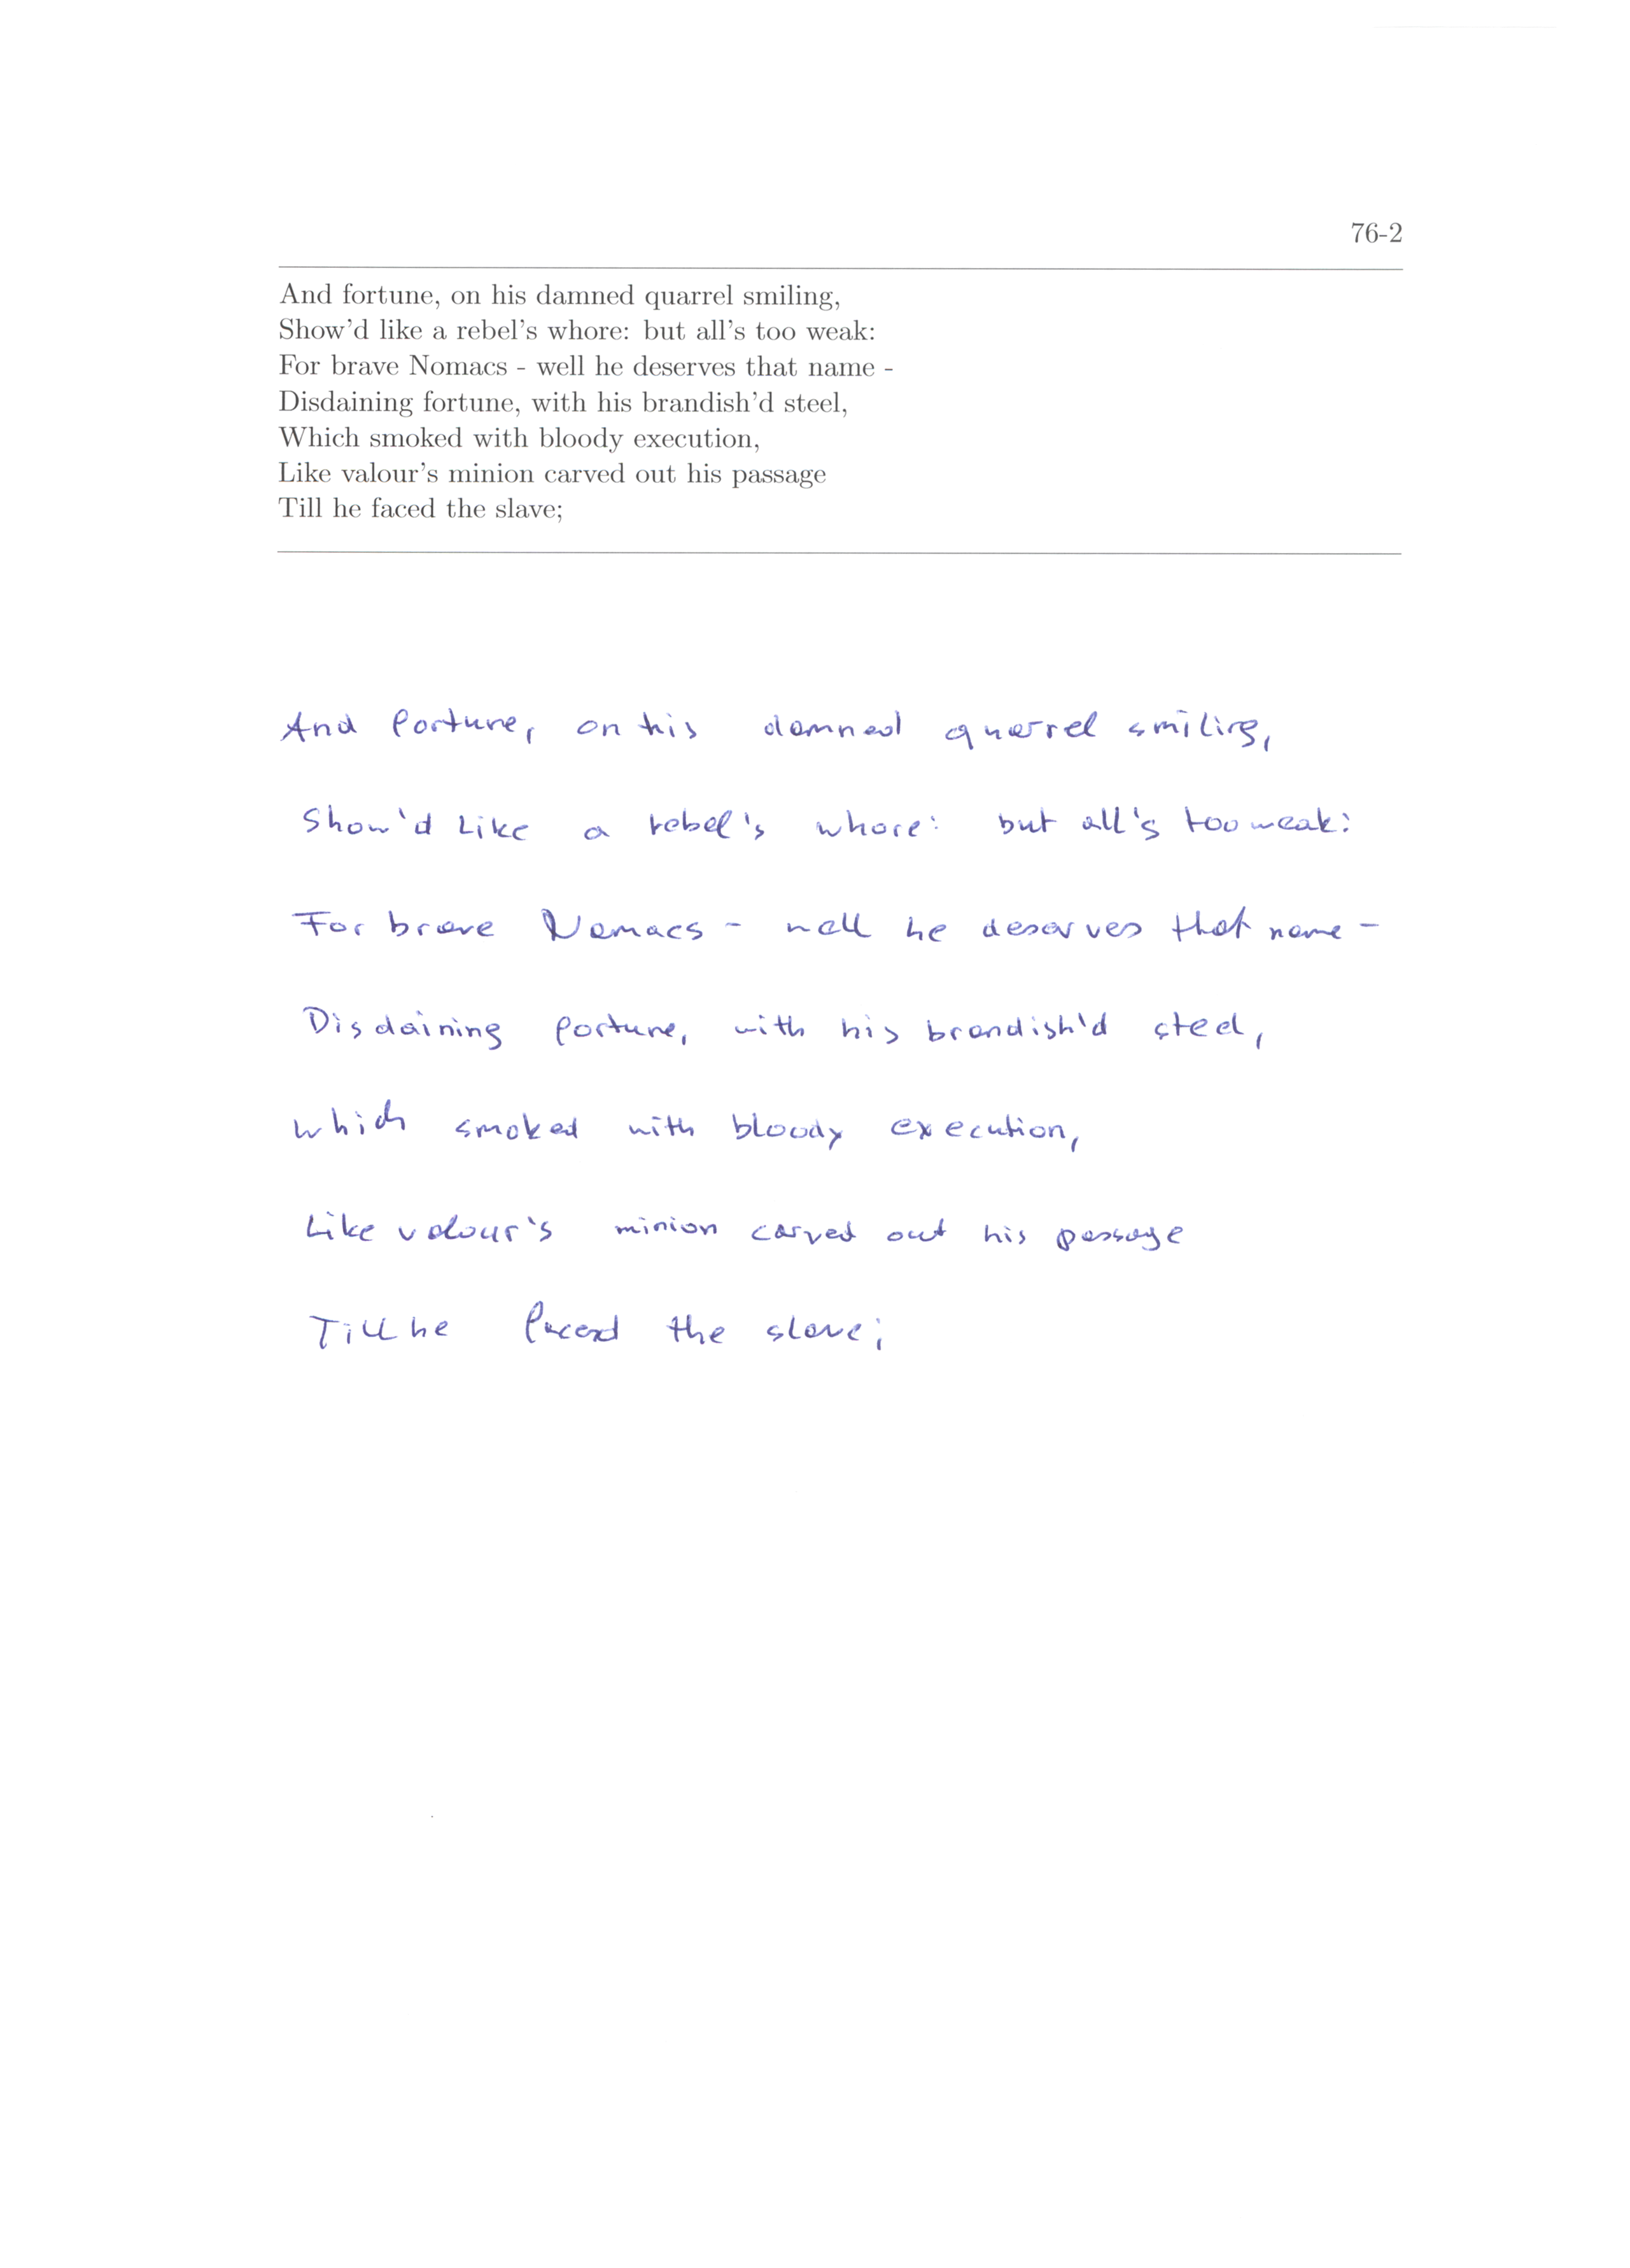 76-2
And fortune, on his damned quarrel smiling,
Show'd like a rebel's whore: but all's too weak:
For brave Nomacs - well he deserves that name -
Disdaining fortune, with his brandish'd steel,
Which smoked with bloody execution,
Like valour's minion carved out his passage
Till he faced the slave;
And fortune, on his damned quarrel smiling,
Show'd like a rebel's whore: but all's too weak:
For brave Nomacs - well he deserves that name -
Disdaining fortune, with his brandish'd steel,
which smoked with bloody execution,
Like valour's minion carved out his passage
Till he faced the slave;